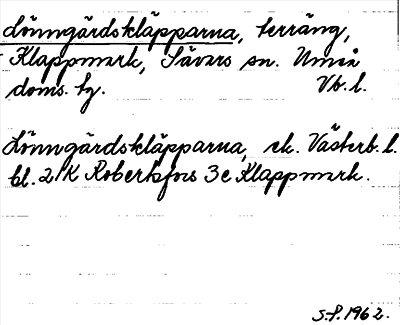 Lönngårdskläpparna, terräng,
Klappmark, Sävars sn. Umeå
doms. hg. Vb. l.
Lönngårdskläpparna, ek. Västerb. l.
bl. 21K Robertsfors 3e Klappmark.
S-P. 1962.